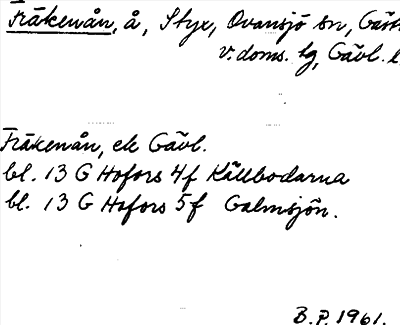 Fräkenån, å, Styx, Ovansjö sn, Gästr.
v. doms. tg, Gävl. l
Fräkenån, ek Gävl.
bl. 13 G Hofors 4f Källbodarna
bl. 13 G Hofors 5f Galmsjön.
B.P. 1961.